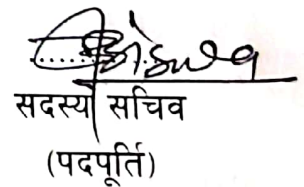 सदस्य सचिव
(पदपूर्ति)